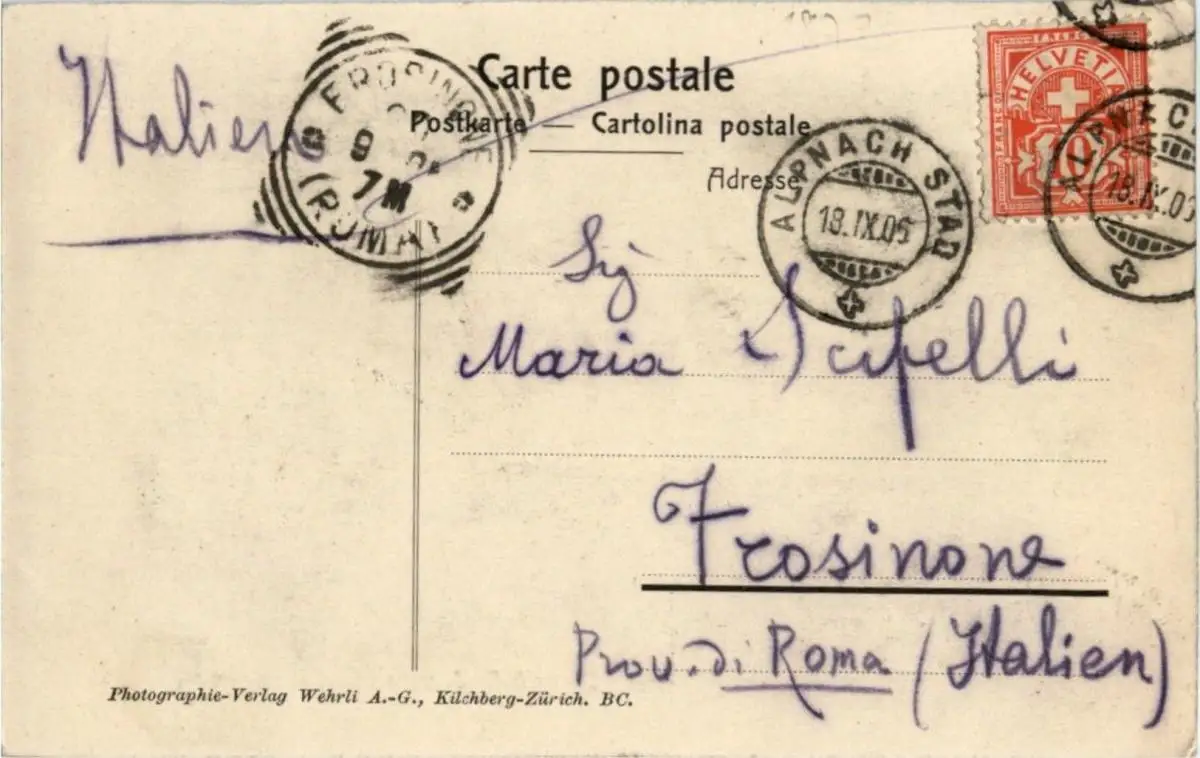 Italien
Carte postale
Postkarte — Cartolina postale
Adresse
FRANCO
HELVETIA
10
ALPNACH STAD
18.IX.05
ALPNACH
18.IX.05
FROSINONE
9
7M
(ROMA)
Sig
Maria Scifelli
Frosinone
Prov. di Roma (Italien)
Photographie-Verlag Wehrli A.-G., Kilchberg-Zürich. BC.